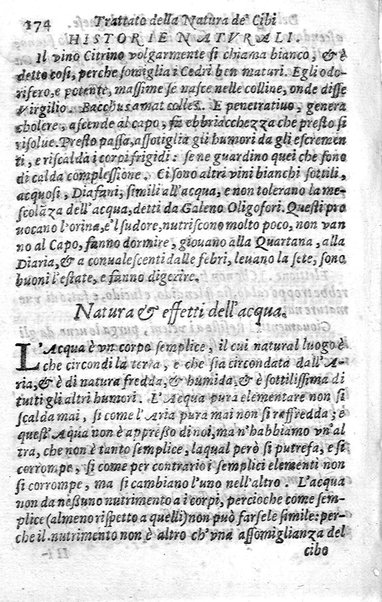 174 Trattato della Natura de' Cibi
HISTORIE NATVRALI.
Il vino Citrino volgarmente si chiama bianco, & è
detto così, perche somiglia i Cedri ben maturi. Egli odo-
rifero, e potente, massime se nasce nelle colline, onde disse
Virgilio. Bacchus amat colles. E penetratiuo, genera
cholere, ascende al capo, fà ebbriacchezza che presto si
risolue. Presto passa, assotiglia gli humori da gli escremen
ti, e riscalda i corpi frigidi: se ne guardino quei che sono
di calda complessione. Ci sono altri vini bianchi sottili,
acquosi, Diafani, simili all'acqua, e non tolerano la me-
scolaza dell'acqua, detti da Galeno Oligofori. Questi pro
uocano l'orina, e'l sudore, nutriscono molto poco, non van
no al Capo, fanno dormire, giouano alla Quartana, alla
Diaria, & a conualescenti dalle febri, leuano la sete, sono
buoni l'estate, e fanno digerire.
Natura & effetti dell'acqua.
L'Acqua è vn corpo semplice, il cui natural luogo è
che circondi la terra, e che sia circondata dall'A-
ria, & è di natura fredda, & humida, & è sottilissima di
tutti gli altri humori. L'Acqua pura elementare non si
scalda mai, si come l'Aria pura mai non si reffredda; &
quest'Acqua non è appresso di noi, ma n'habbiamo vn'al
tra, che non è tanto semplice, laqual però si putrefa, e si
corrompe, si come per contrario i semplici elementi non
si corrompe, ma si cambiano l'uno nell'altro. L'acqua
non da nessuno nutrimento a i corpi, percioche come sem-
plice (almeno rispetto a quelli) non può farsele simile: per-
che il nutrimento non è altro ch'vna assomiglianza del
cibo